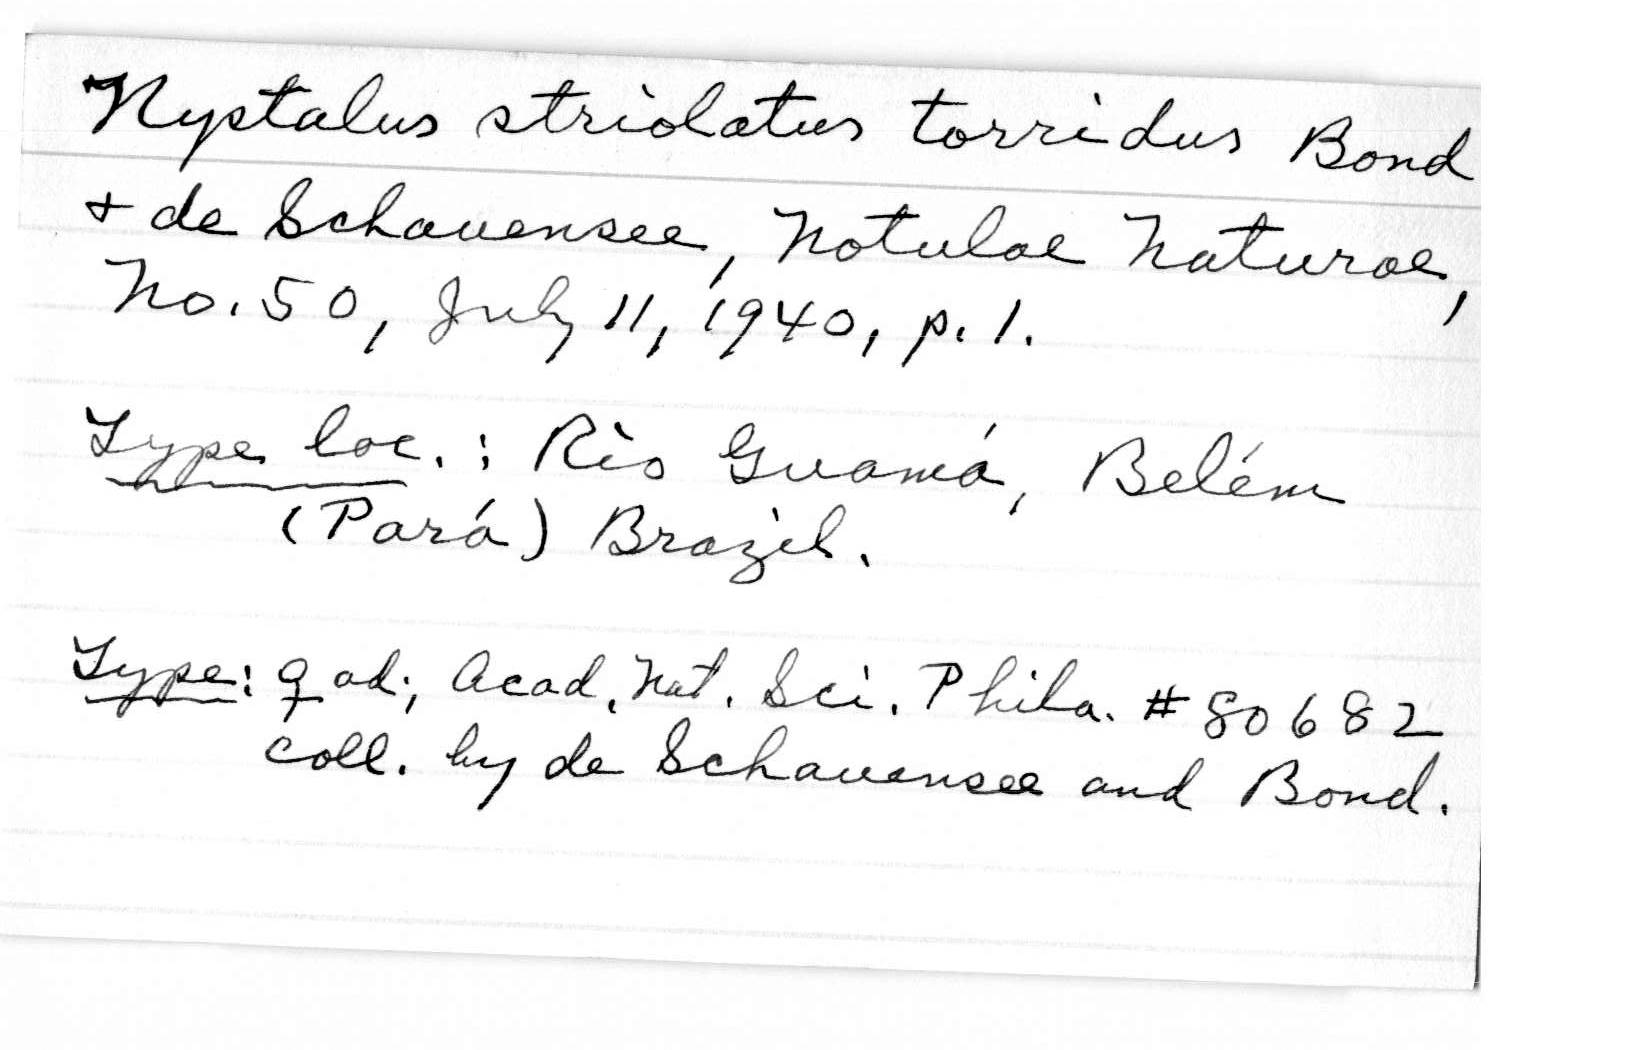 Nystalus striolatus torridus Bond
+ de Schauensee, Notulae Naturae,
No. 50, July 11, 1940, p. 1.
Type loc.: Rio Guamá, Belém
(Pará) Brazil.
Type: ♀ ad; Acad. Nat. Sci. Phila. #80682
coll. by de Schauensee and Bond.